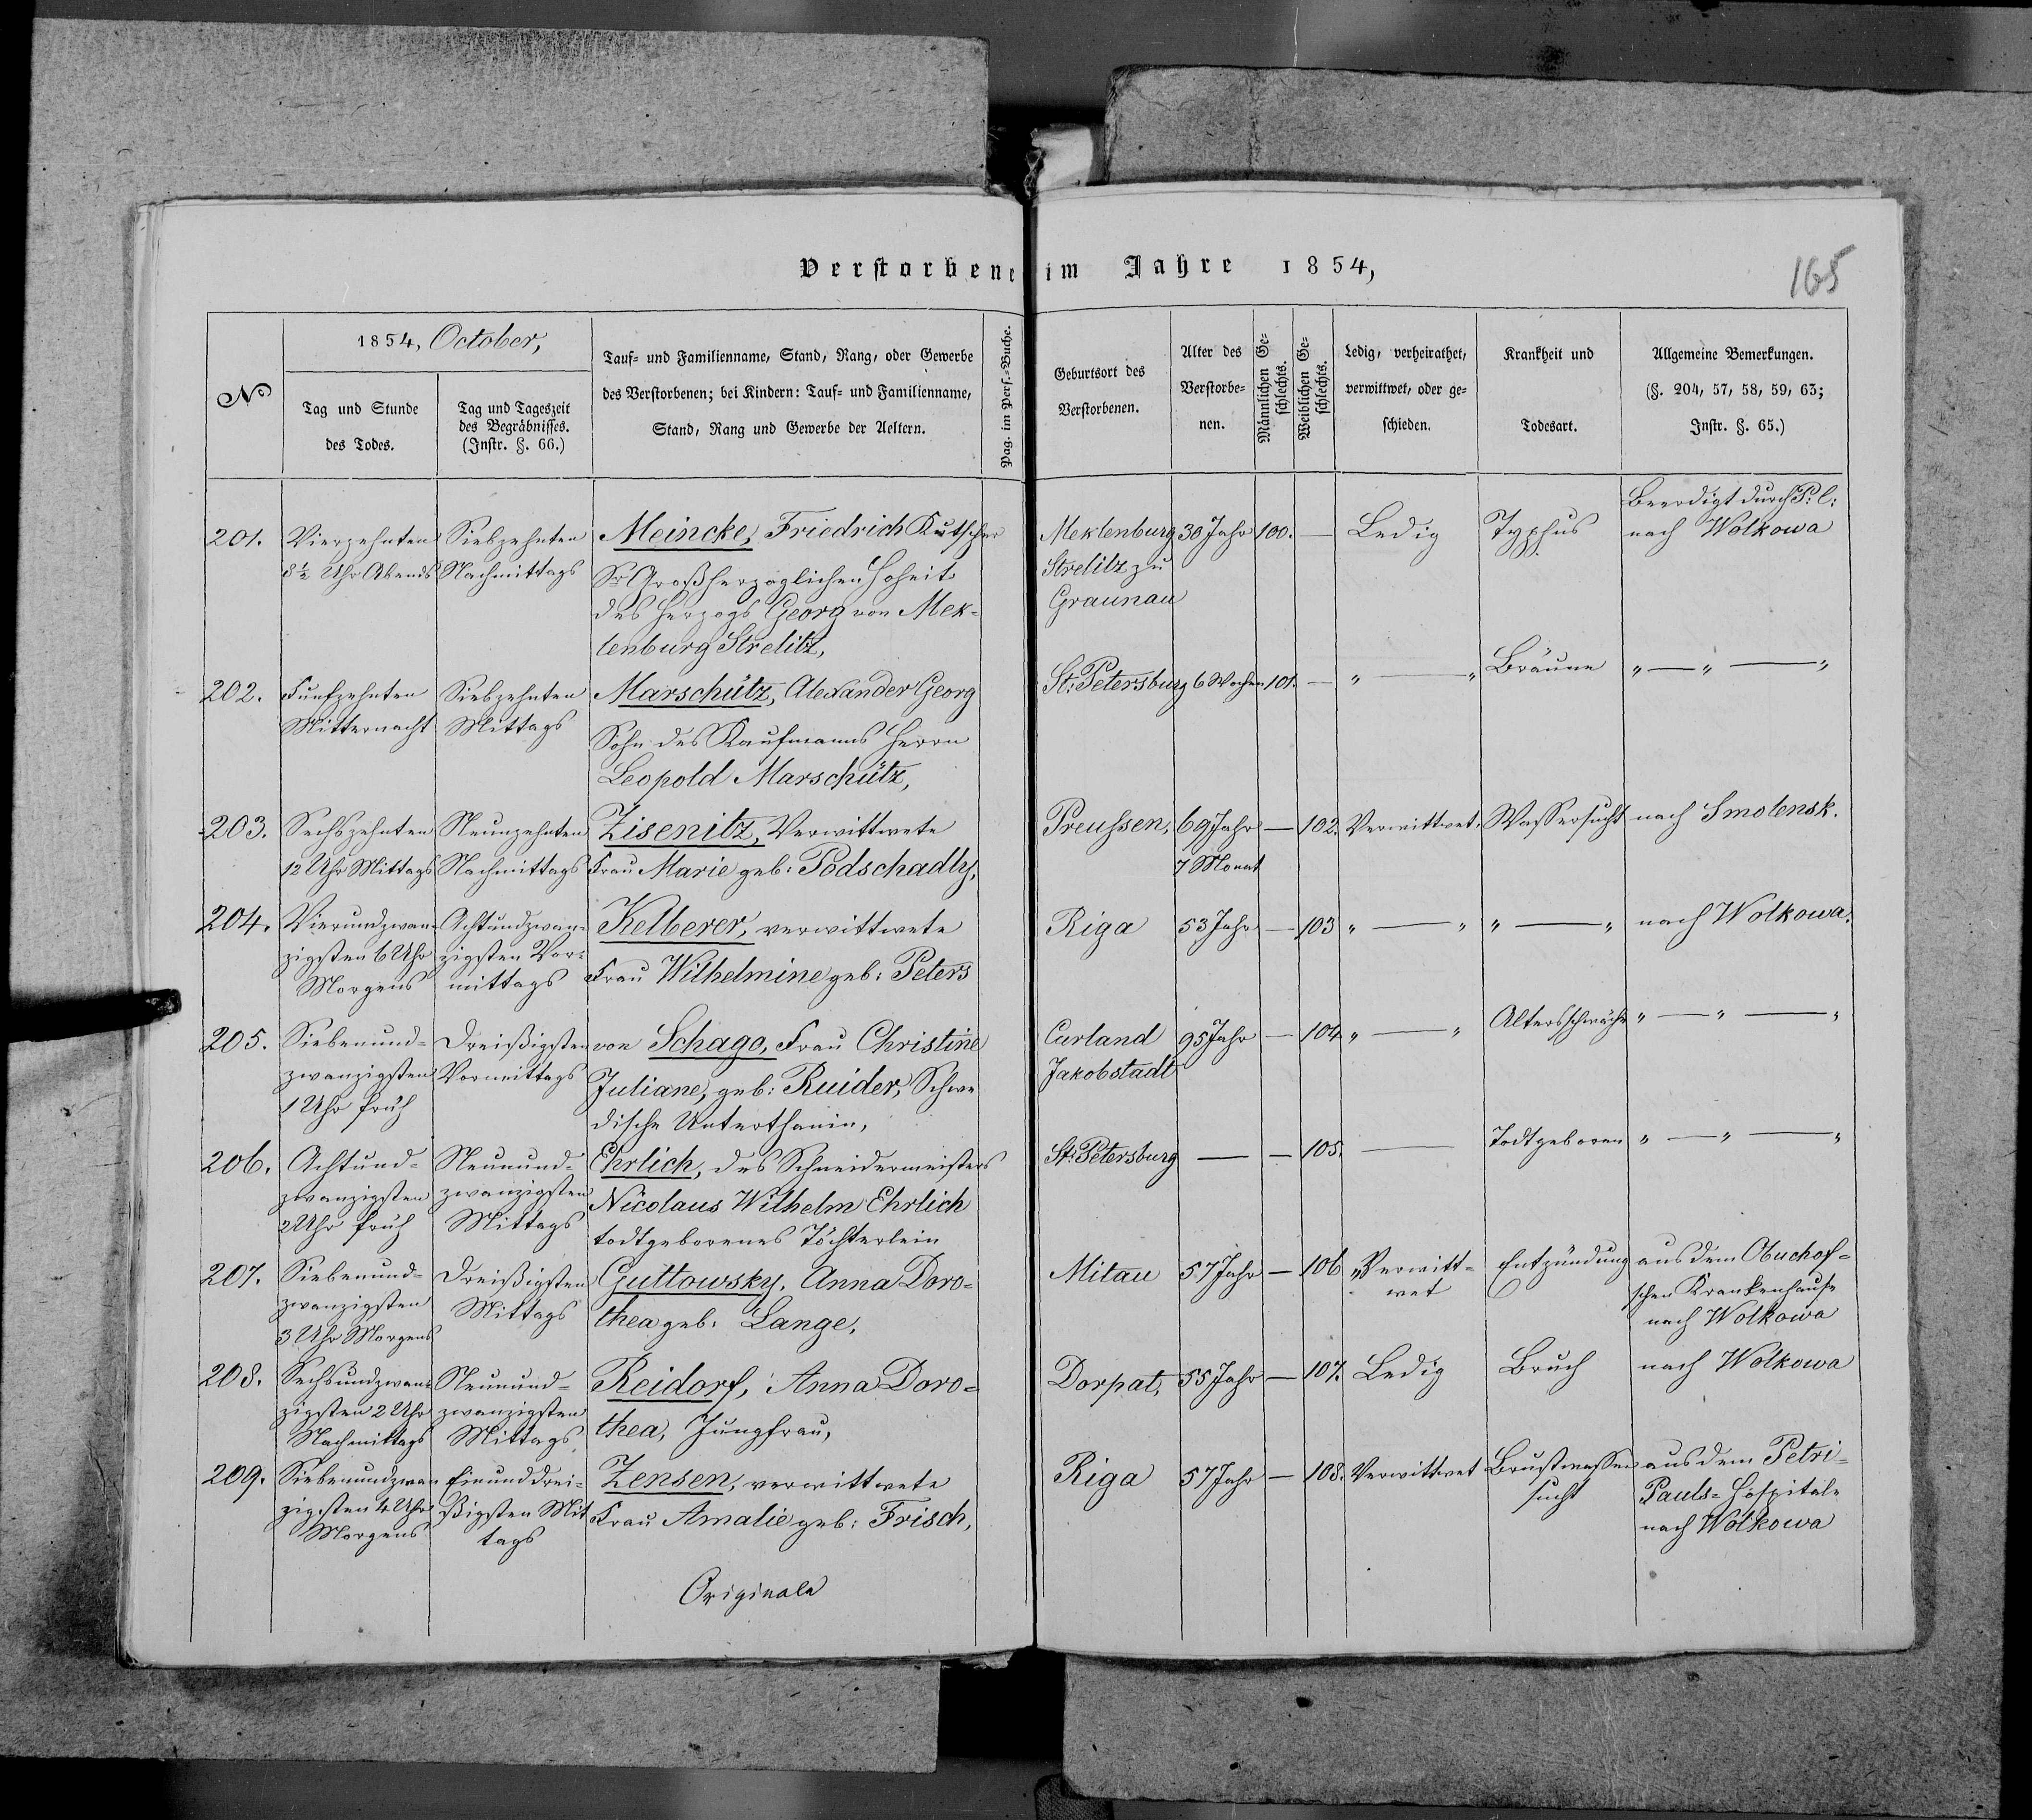 Verstorbene im Jahre 1854,
165
No
1854, October,
Tag und Stunde
des Todes.
Tag und Tageszeit
des Begräbnisses.
(Instr. §. 66.)
Tauf- und Familienname, Stand, Rang, oder Gewerbe
des Verstorbenen; bei Kindern: Tauf- und Familienname,
Stand, Rang und Gewerbe der Aeltern.
Pag. im Pers.-Buche.
Geburtsort des
Verstorbenen.
Alter des
Verstorbe-
nen.
Männlichen Ge-
schlechts.
Weiblichen Ge-
schlechts.
Ledig, verheirathet,
verwittwet, oder ge-
schieden.
Krankheit und
Todesart.
Allgemeine Bemerkungen.
(§. 204, 57, 58, 59, 63;
Instr. §. 65.)
201.
Vierzehnten
8½ Uhr Abends
Siebzehnten
Nachmittags
Meincke, Friedrich Kutscher
Sr Großherzoglichen Hoheit
des Herzogs Georg von Mek-
lenburg Strelitz,
Meklenburg
Strelitz zu
Graunau
30 Jahr
100.
—
Ledig
Typhus
Beerdigt durch P. l:
nach Wolkowa
202.
Funfzehnten
Mitternacht
Siebzehnten
Mittags
Marschütz, Alexander Georg
Sohn des Kaufmanns Herrn
Leopold Marschütz,
St. Petersburg
6 Wochen
101.
—
" — "
Bräune
" — " — "
203.
Sechszehnten
12 Uhr Mittags
Neunzehnten
Nachmittags
Zisenitz, Verwittwete
Frau Marie geb: Podschadly,
Preussen,
69 Jahr
7 Monat
—
102.
Verwittwet,
Wassersucht
nach Smolensk.
204.
Vierundzwan-
zigsten 6 Uhr
Morgens
Achtundzwan-
zigsten Vor-
mittags
Kelberer, verwittwete
Frau Wilhelmine geb: Peters
Riga
53 Jahr
—
103
" — "
" — "
nach Wolkowa.
205.
Siebenund-
zwanzigsten
1 Uhr früh
Dreißigsten
Vormittags
von Schago, Frau Christine
Juliane, geb: Ruider, Schwe
dische Unterthanin,
Curland
Jakobstadt
95 Jahr
—
104
" — "
Altersschwäche
" — " — "
206.
Achtund-
zwanzigsten
2 Uhr früh
Neunund-
zwanzigsten
Mittags
Ehrlich, des Schneidermeisters
Nicolaus Wilhelm Ehrlich
todtgeborenes Töchterlein
St. Petersburg
—
—
105.
—
Todtgeboren
" — " — "
207.
Siebenund-
zwanzigsten
3 Uhr Morgens
Dreißigsten
Mittags
Guttowsky, Anna Doro-
thea geb: Lange,
Mitau
57 Jahr
—
106
Verwitt-
wet
Entzündung
aus dem Obuchof-
schen Krankenhause
nach Wolkowa
208.
Sechsundzwan-
zigsten 2 Uhr
Nachmittags
Neunund-
zwanzigsten
Mittags
Reidorf, Anna Doro-
thea, Jungfrau,
Dorpat,
55 Jahr
—
107.
Ledig
Bruch
nach Wolkowa
209.
Siebenundzwan
zigsten 4 Uhr
Morgens
Einunddrei-
ßigsten Mit
tags
Zensen, verwittwete
Frau Amalie geb: Frisch,
Riga
57 Jahr
—
108.
Verwittwet
Brustwasser
sucht
aus dem Petri-
Pauls-Hospitale
nach Wolkowa
Originale